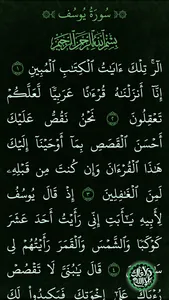 سُورَةُ يُوسُفَ
بِسْمِ ٱللَّهِ ٱلرَّحْمَٰنِ ٱلرَّحِيمِ
الٓرۚ تِلْكَ ءَايَٰتُ ٱلْكِتَٰبِ ٱلْمُبِينِ ١
إِنَّآ أَنزَلْنَٰهُ قُرْءَٰنًا عَرَبِيًّا لَّعَلَّكُمْ
تَعْقِلُونَ ٢ نَحْنُ نَقُصُّ عَلَيْكَ
أَحْسَنَ ٱلْقَصَصِ بِمَآ أَوْحَيْنَآ إِلَيْكَ
هَٰذَا ٱلْقُرْءَانَ وَإِن كُنتَ مِن قَبْلِهِۦ
لَمِنَ ٱلْغَٰفِلِينَ ٣ إِذْ قَالَ يُوسُفُ
لِأَبِيهِ يَٰٓأَبَتِ إِنِّى رَأَيْتُ أَحَدَ عَشَرَ
كَوْكَبًا وَٱلشَّمْسَ وَٱلْقَمَرَ رَأَيْتُهُمْ لِى
سَٰجِدِينَ ٤ قَالَ يَٰبُنَىَّ لَا تَقْصُصْ
رُءْيَاكَ عَلَىٰٓ إِخْوَتِكَ فَيَكِيدُوا۟ لَكَ